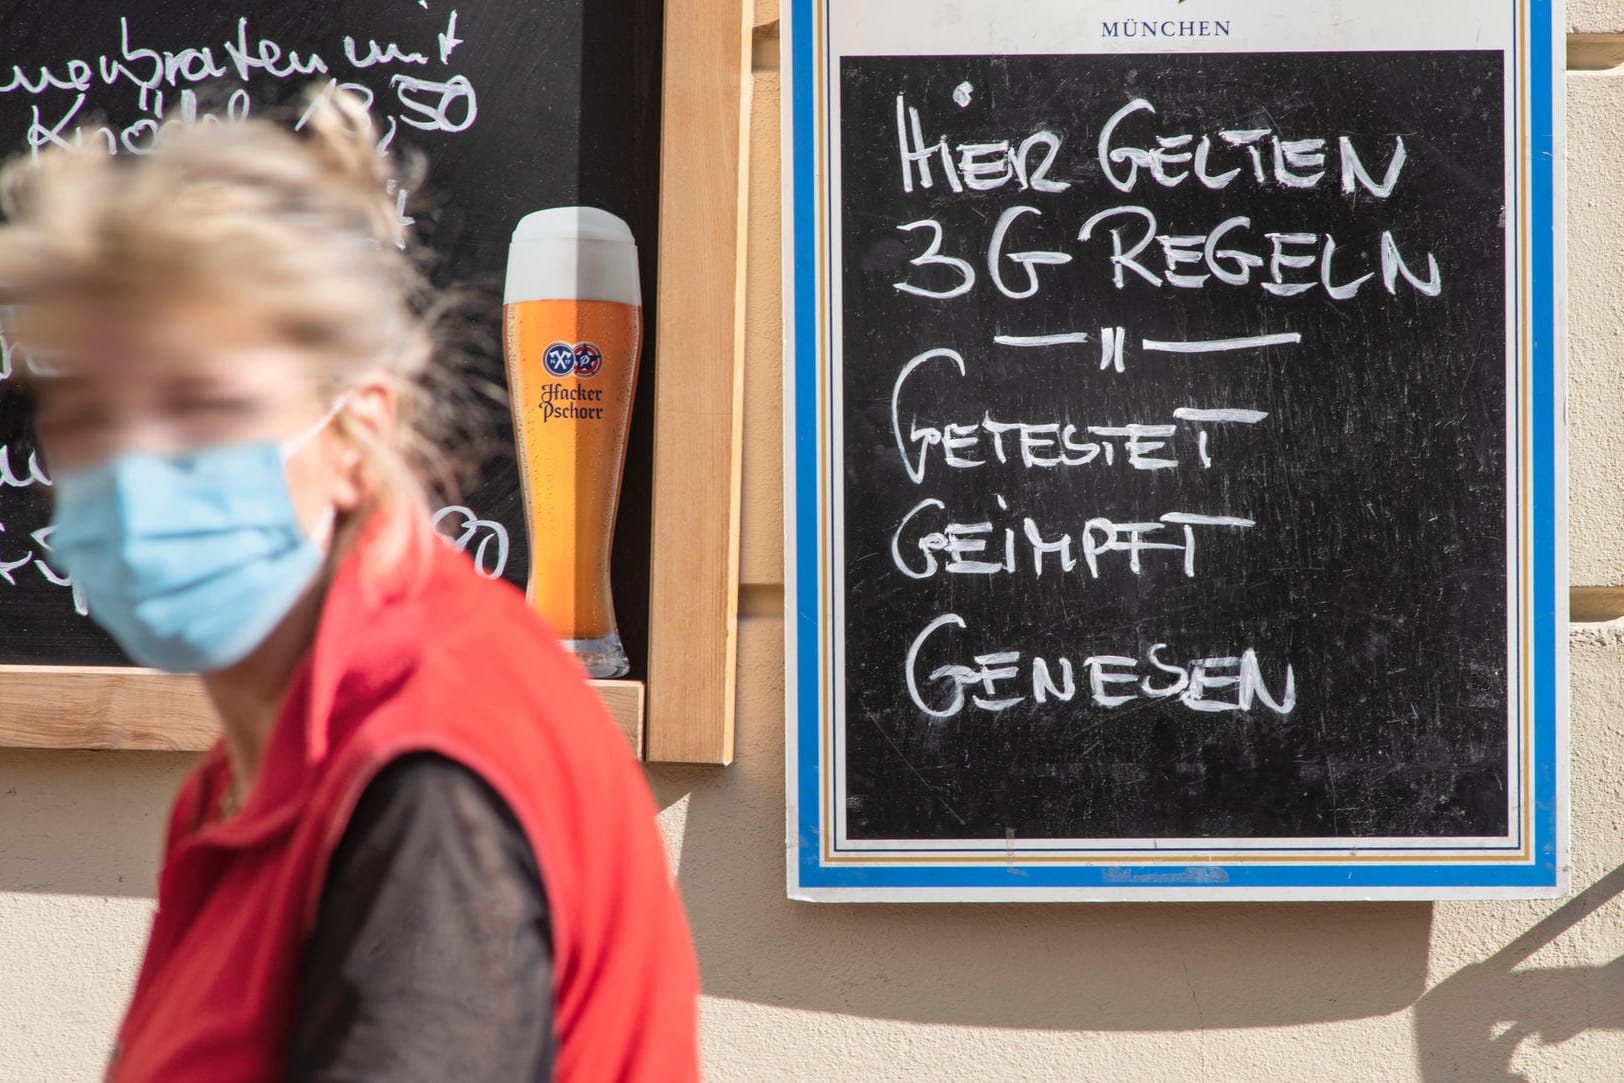 mit
Knödel
,50
Hacker
Pschorr
MÜNCHEN
HIER GELTEN
3G REGELN
GETESTET
GEIMPFT
GENESEN